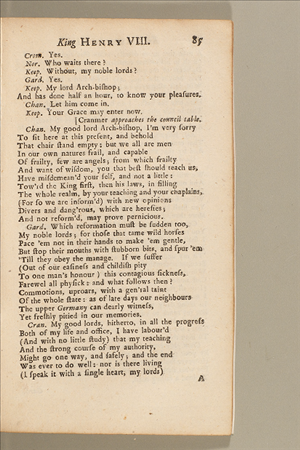 King HENRY VIII. 85
Crom. Yes.
Nor. Who waits there?
Keep. Without, my noble lords?
Gard. Yes.
Keep. My lord Arch-bishop;
And has done half an hour, to know your pleasures.
Chan. Let him come in.
Keep. Your Grace may enter now.
[Cranmer approaches the council table.
Chan. My good lord Arch-bishop, I'm very sorry
To sit here at this present, and behold
That chair stand empty: but we all are men
In our own natures frail, and capable
Of frailty, few are angels; from which frailty
And want of wisdom, you that best should teach us,
Have misdemean'd your self, and not a little:
Tow'rd the King first, then his laws, in filling
The whole realm, by your teaching and your chaplains,
(For so we are inform'd) with new opinions
Divers and dang'rous, which are heresies;
And not reform'd, may prove pernicious.
Gard. Which reformation must be sudden too,
My noble lords; for those that tame wild horses
Pace 'em not in their hands to make 'em gentle,
But stop their mouths with stubborn bits, and spur 'em
'Till they obey the manage. If we suffer
(Out of our easiness and childish pity
To one man's honour) this contagious sickness,
Farewel all physick: and what follows then?
Commotions, uproars, with a gen'ral taint
Of the whole state: as of late days our neighbours
The upper Germany can dearly witness,
Yet freshly pitied in our memories.
Cran. My good lords, hitherto, in all the progress
Both of my life and office, I have labour'd
(And with no little study) that my teaching
And the strong course of my authority,
Might go one way, and safely; and the end
Was ever to do well: nor is there living
(I speak it with a single heart, my lords)
A